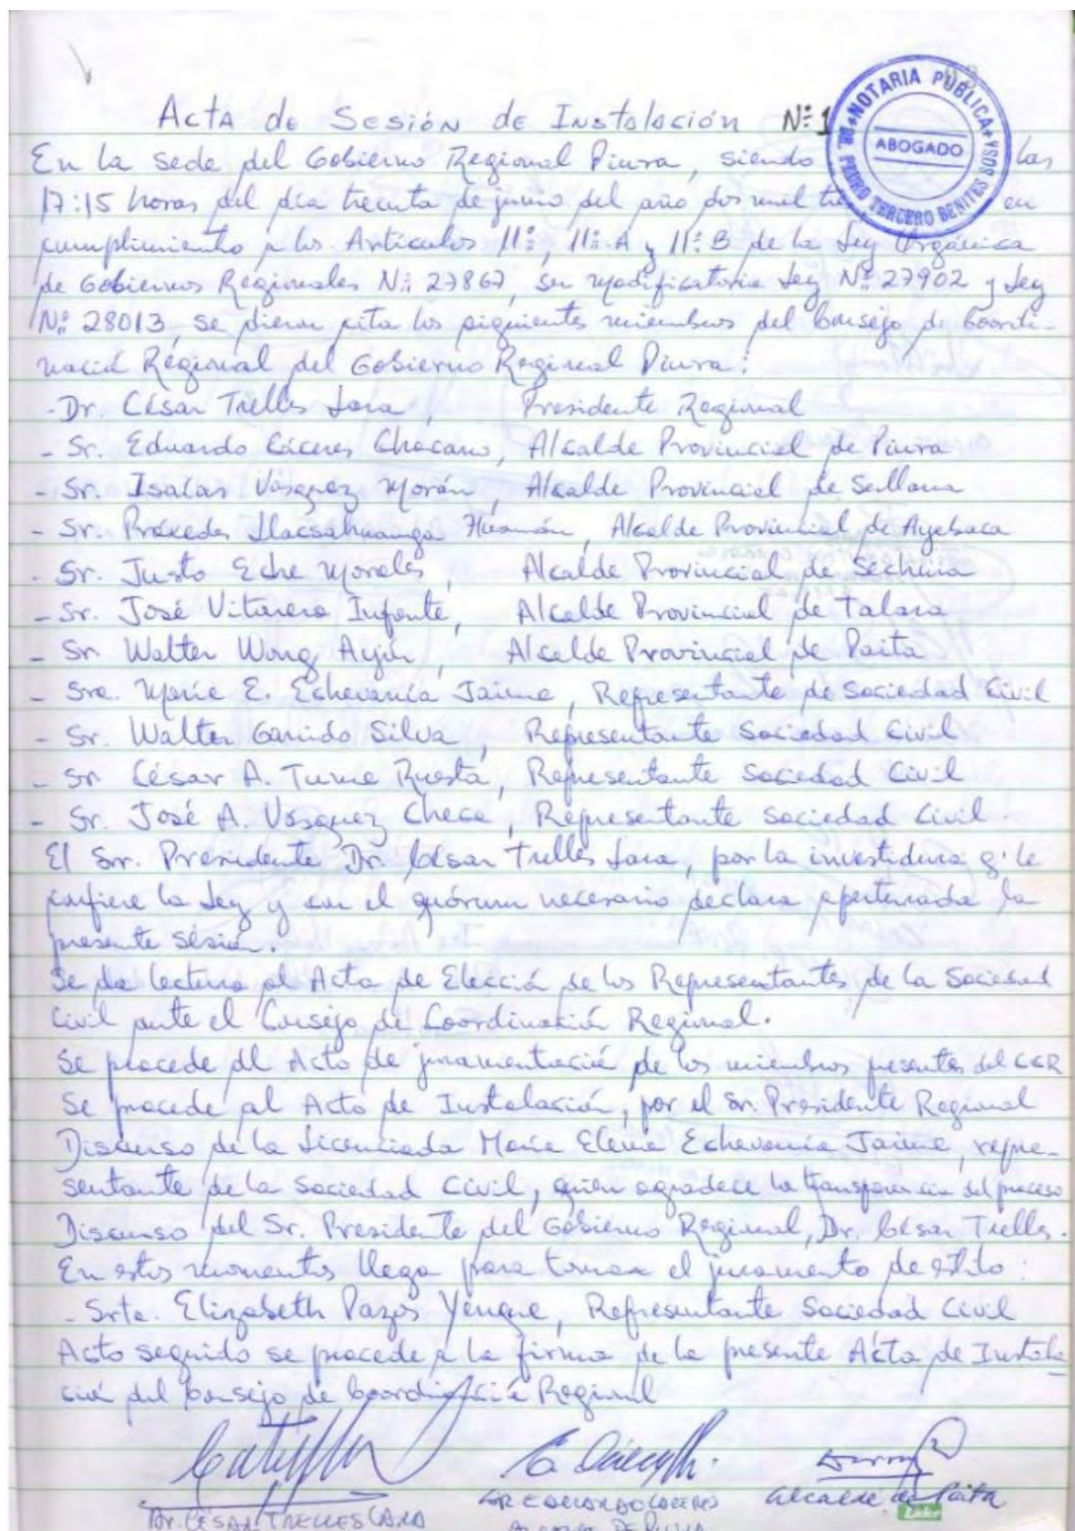 Acta de Sesión de Instalación Nº 1
NOTARIA PUBLICA
ABOGADO
DR. PEDRO TERCERO BENITES SOSA
En la sede del Gobierno Regional Piura, siendo las
17:15 horas del día treinta de junio del año dos mil en
cumplimiento a los Artículos 11º, 11º.A y 11º.B de la Ley Orgánica
de Gobiernos Regionales Nº 27867, su modificatoria Ley Nº 27902 y Ley
Nº 28013, se dieron cita los siguientes miembros del Consejo de Coordi-
nación Regional del Gobierno Regional Piura:
- Dr. César Trelles Lara, Presidente Regional
- Sr. Eduardo Cáceres Chocano, Alcalde Provincial de Piura
- Sr. Isaías Vásquez Morán, Alcalde Provincial de Sullana
- Sr. Práxedes Llacsahuanga Huamán, Alcalde Provincial de Ayabaca
- Sr. Justo Eche Morales, Alcalde Provincial de Sechura
- Sr. José Vitarera Infante, Alcalde Provincial de Talara
- Sr. Walter Wong Ayón, Alcalde Provincial de Paita
- Sra. María E. Echevarría Jaime, Representante de Sociedad Civil
- Sr. Walter Garrido Silva, Representante Sociedad Civil
- Sr. César A. Tume Ruesta, Representante Sociedad Civil
- Sr. José A. Vásquez Checa, Representante Sociedad Civil.
El Sr. Presidente Dr. César Trelles Lara, por la investidura q' le
confiere la Ley y con el quórum necesario declara aperturada la
presente sesión.
Se da lectura al Acta de Elección de los Representantes de la Sociedad
Civil ante el Consejo de Coordinación Regional.
Se procede al Acto de juramentación de los miembros presentes del CCR
Se procede al Acto de Instalación, por el Sr. Presidente Regional
Discurso de la Licenciada María Elena Echevarría Jaime, repre-
sentante de la Sociedad Civil, quien agradece la transparencia del proceso
Discurso del Sr. Presidente del Gobierno Regional, Dr. César Trelles.
En estos momentos llega para tomar el juramento de estilo:
- Srta. Elizabeth Pazos Yenque, Representante Sociedad Civil
Acto seguido se procede a la firma de la presente Acta de Instala-
ción del Consejo de Coordinación Regional
DR. CÉSAR TRELLES LARA
EDUARDO CACERES
ALCALDE DE PIURA
Alcalde de Paita
Líder